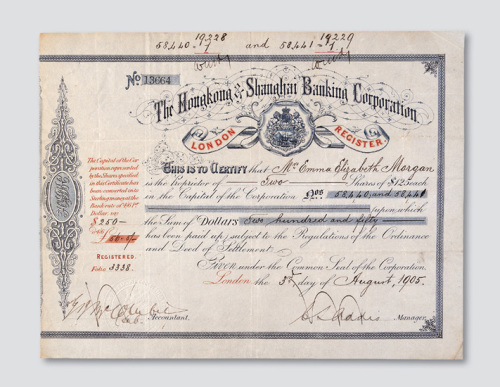 19228 19229
58,440 - 7 and 58,441 - 7
No 13664
The Hongkong & Shanghai Banking Corporation.
LONDON REGISTER
This is to Certify that Mrs Emma Elizabeth Morgan
is the Proprietor of Two Shares of $125 each
in the Capital of the Corporation Nos 58,440 and 58,441
upon which
the Sum of Dollars Two hundred and fifty
has been paid up, subject to the Regulations of the Ordinance
and Deed of Settlement.
Given under the Common Seal of the Corporation.
London the 3rd day of August, 1905.
The Capital of the Corporation represented by the Shares specified in this Certificate has been converted into
Dollar
$250-
REGISTERED.
Folio 3338.
Accountant.
Manager.